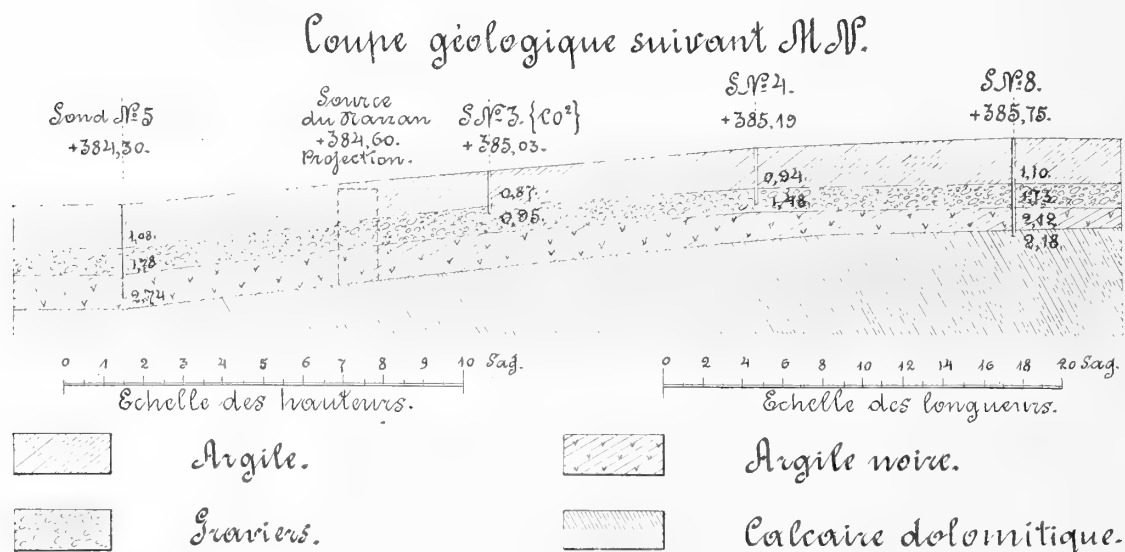 Coupe géologique suivant MN.
Sond № 5
+384,30.
Source
du Narzan
+384,60.
Projection.
S.№ 3. {CO²}
+385,03.
S.№ 4.
+385,19
S.№ 8.
+385,75.
1,08.
1,78
2,74
0,87.
0,95.
0,94.
1,48.
1,10.
1,73.
2,12.
2,18.
0 1 2 3 4 5 6 7 8 9 10 Sag.
Echelle des hauteurs.
0 2 4 6 8 10 12 14 16 18 20 Sag.
Echelle des longueurs.
Argile.
Argile noire.
Graviers.
Calcaire dolomitique.